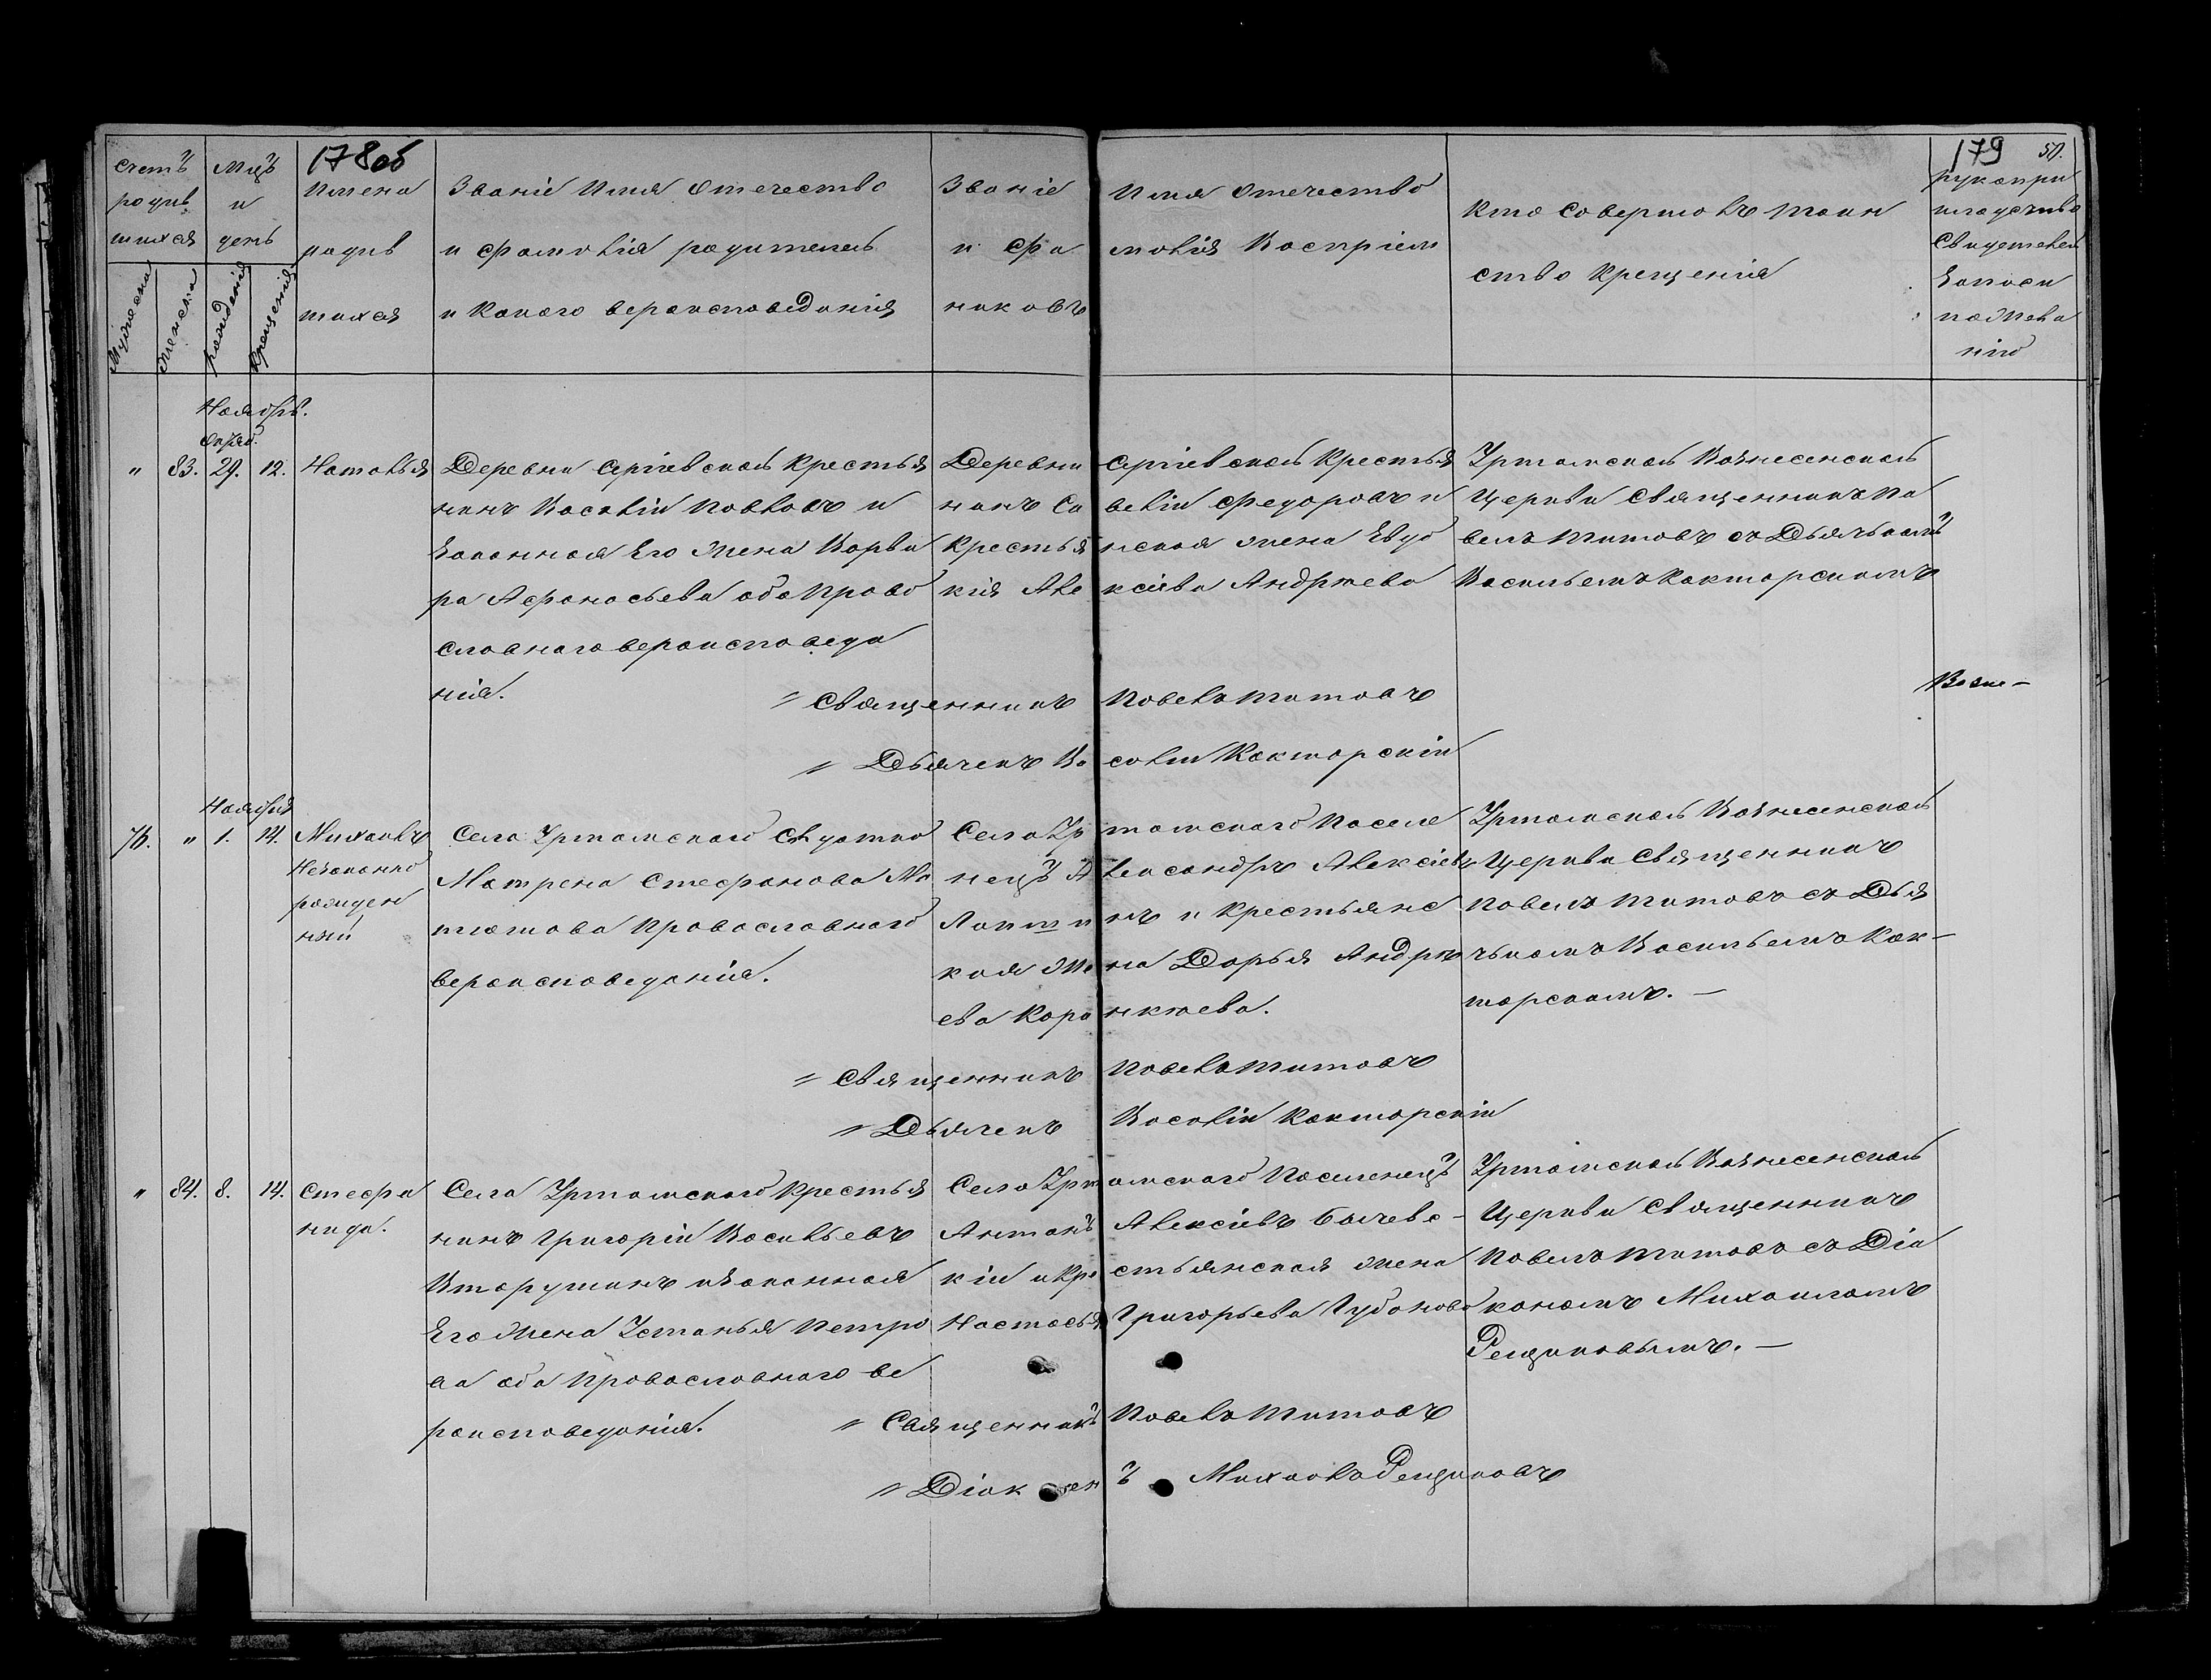 178 об
179 50.
Счетъ родив шихся
Мцъ и день
Имена родив шихся
Званіе Имя Отечество и фамилія родителей и какого вероисповеданія
Званіе Имя Отечество
и фамилія Воспріем
никовъ
Кто совершилъ таин
ство крещенія
рукопри
кладство
Свидетелей
Записи
по Жела
нію
Мужеска
Женска
рожденія
Крещенія
Ноябрь.
Октяб.
" 83. 29. 12. Наталья
Деревни Сергіевской Крестья
нинъ Василій Павловъ и
Законная Его Жена Варва
ра Афанасьева оба Право
славнаго вероисповеда
нія.
Деревни Сергіевской Крестья
нинъ Савелій Федоровъ и
Крестьянская жена Евдо
кія Алексіева Андреева
Уртамской Вознесенской
Церкви Священникъ Па
велъ Титовъ съ Дьячкомъ
Васильемъ Какторскимъ
" Священникъ Павелъ Титовъ
" Дьячекъ Василій Какторскій
Возне-
Ноября
76. " 1. 14. Михаилъ
Незаконно
рожден
ный
Села Уртамского
Матрена Стефанова
Православнаго
вероисповеданія.
Села Уртамского Поселе
нецъ Александръ Алексіевъ
и Крестьянс
кая Жена Дарья Андре
ева
Уртамской Вознесенской
Церкви Священникъ
Павелъ Титовъ съ Дья
чкомъ Васильемъ Как-
торскимъ. -
" Священникъ Павелъ Титовъ
" Дьячекъ Василій Какторскій
" 84. 8. 14. Стефа
нида.
Села Уртамского Крестья
нинъ Григорій Васильевъ
Вторушинъ и Законная
Его Жена Устинья Петро
ва оба Православнаго ве
роисповеданія.
Села Уртамского Поселенецъ
Антонъ Алексіевъ Бычевс-
кій и Крестьянская жена
Настасья Григорьева Губанова
Уртамской Вознесенской
Церкви Священникъ
Павелъ Титовъ съ Діа
кономъ Михаиломъ
Рещиковымъ. -
" Священникъ Павелъ Титовъ
" Діаконъ Михаилъ Рещиковъ